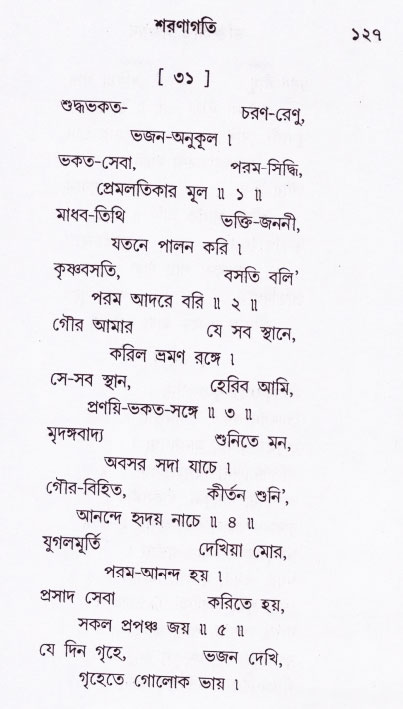 শরণাগতি ১২৭
[ ৩১ ]
শুদ্ধভকত- চরণ-রেণু,
ভজন-অনুকূল ।
ভকত-সেবা, পরম-সিদ্ধি,
প্রেমলতিকার মূল ॥ ১ ॥
মাধব-তিথি ভক্তি-জননী,
যতনে পালন করি ।
কৃষ্ণবসতি, বসতি বলি'
পরম আদরে বরি ॥ ২ ॥
গৌর আমার যে সব স্থানে,
করিল ভ্রমণ রঙ্গে ।
সে-সব স্থান, হেরিব আমি,
প্রণয়ি-ভকত-সঙ্গে ॥ ৩ ॥
মৃদঙ্গবাদ্য শুনিতে মন,
অবসর সদা যাচে ।
গৌর-বিহিত, কীর্তন শুনি',
আনন্দে হৃদয় নাচে ॥ ৪ ॥
যুগলমূর্তি দেখিয়া মোর,
পরম-আনন্দ হয় ।
প্রসাদ সেবা করিতে হয়,
সকল প্রপঞ্চ জয় ॥ ৫ ॥
যে দিন গৃহে, ভজন দেখি,
গৃহেতে গোলোক ভায় ।